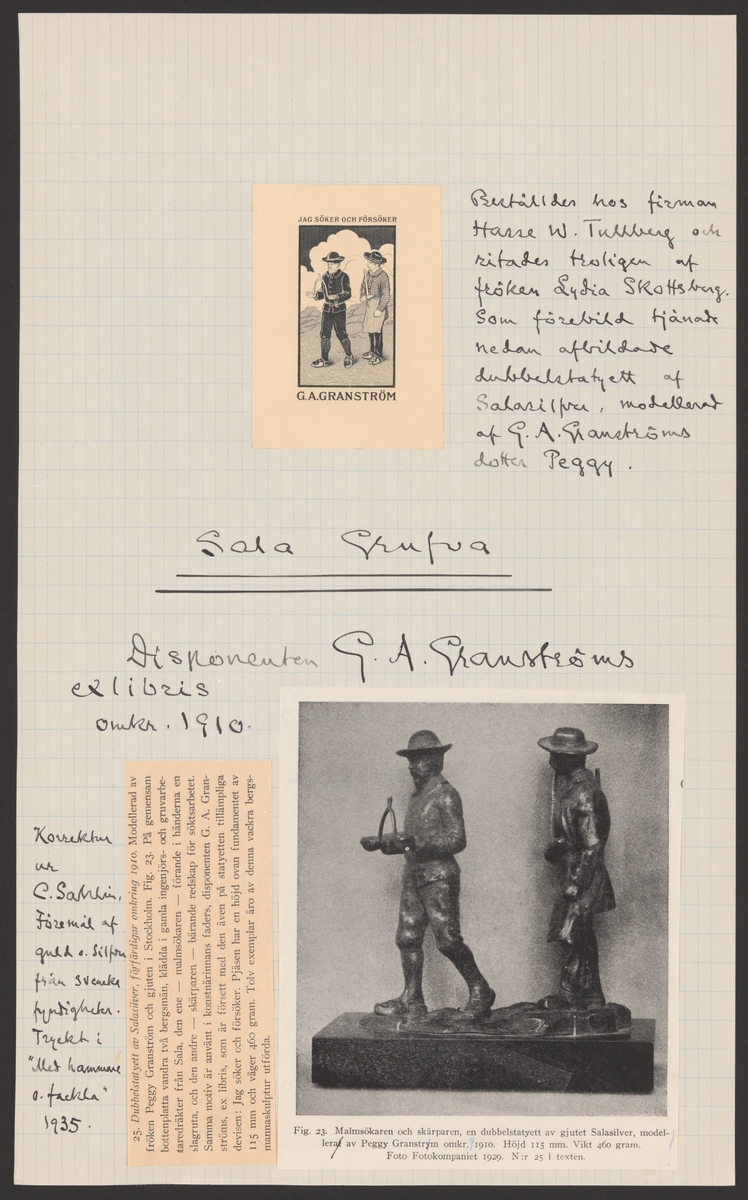 JAG SÖKER OCH FÖRSÖKER
G.A.GRANSTRÖM
Beställdes hos firman
Hasse W. Tullberg och
ritades troligen af
fröken Lydia Skottsberg.
Som förebild tjänade
nedan afbildade
dubbelstatyett af
Salasilfver, modellerad
af G. A. Granströms
dotter Peggy.
Sala Grufva
Disponenten G. A. Granströms
exlibris
omkr. 1910.
Korrektur
ur
C. Sahlin,
Föremål af
guld o. Silfver
från svenska
fyndigheter.
Tryckt i
"Med hammare
o. fackla"
1935.
25. Dubbelstatyett av Salasilver, förfärdigar omkring 1910. Modellerad av
fröken Peggy Granström och gjuten i Stockholm. Fig. 23. På gemensam
bottenplatta vandra två bergsmän, klädda i gamla ingenjörs- och gruvarbe-
taredräkter från Sala, den ene — malmsökaren — förande i händerna en
slagruta, och den andre — skärparen — bärande redskap för söktsarbetet.
Samma motiv är använt i konstnärinnans faders, disponenten G. A. Gran-
ströms, ex libris, som är försett med den även på statyetten tillämpliga
devisen: Jag söker och försöker. Pjäsen har en höjd ovan fundamentet av
115 mm och väger 460 gram. Tolv exemplar äro av denna vackra bergs-
mannaskulptur utförda.
Fig. 23. Malmsökaren och skärparen, en dubbelstatyett av gjutet Salasilver, model-
lerat av Peggy Granström omkr. 1910. Höjd 115 mm. Vikt 460 gram.
Foto Fotokompaniet 1929. N:r 25 i texten.